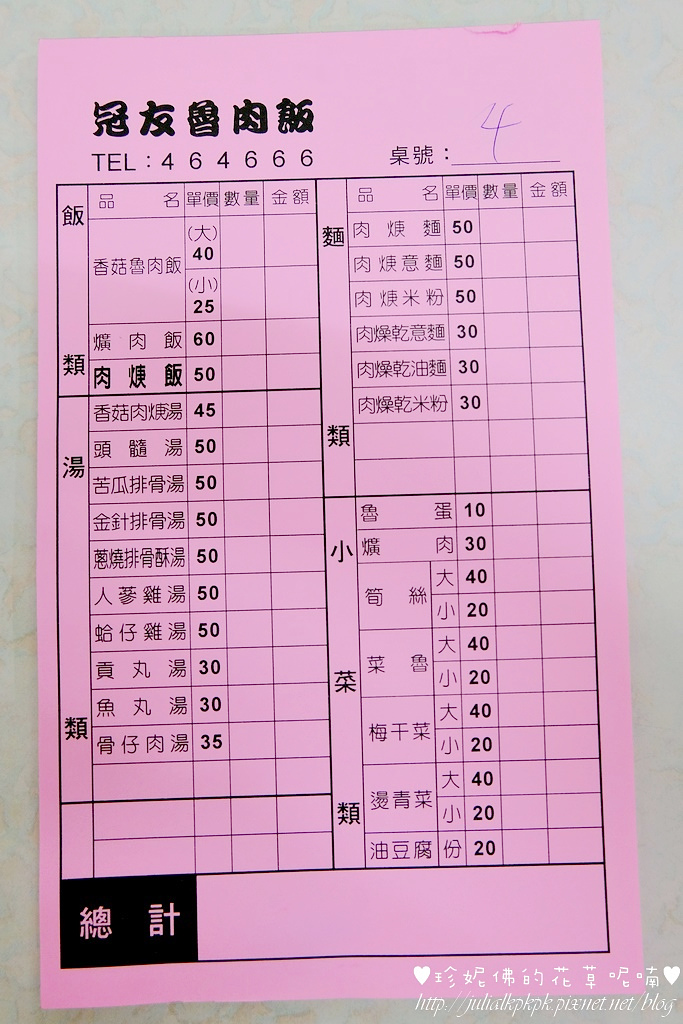 冠友魯肉飯
TEL：4 6 4 6 6 6
桌號：4
飯類
品名 單價 數量 金額
香菇魯肉飯 (大) 40
(小) 25
爌肉飯 60
肉焿飯 50
湯類
香菇肉焿湯 45
頭髓湯 50
苦瓜排骨湯 50
金針排骨湯 50
蔥燒排骨酥湯 50
人蔘雞湯 50
蛤仔雞湯 50
貢丸湯 30
魚丸湯 30
骨仔肉湯 35
麵類
品名 單價 數量 金額
肉焿麵 50
肉焿意麵 50
肉焿米粉 50
肉燥乾意麵 30
肉燥乾油麵 30
肉燥乾米粉 30
小菜類
魯蛋 10
爌肉 30
筍絲 大 40
小 20
菜魯 大 40
小 20
梅干菜 大 40
小 20
燙青菜 大 40
小 20
油豆腐 份 20
總計
♥珍妮佛的花草呢喃♥
http://julialkpkpk.pixnet.net/blog